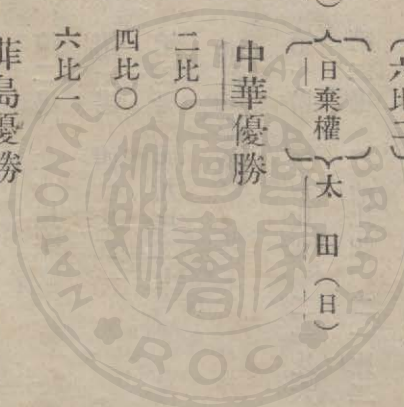 （六比三）
日棄權
太田（日）
中華優勝
二比〇
四比〇
六比一
菲島優勝
NATIONAL CENTRAL LIBRARY
ROC
國家圖書館